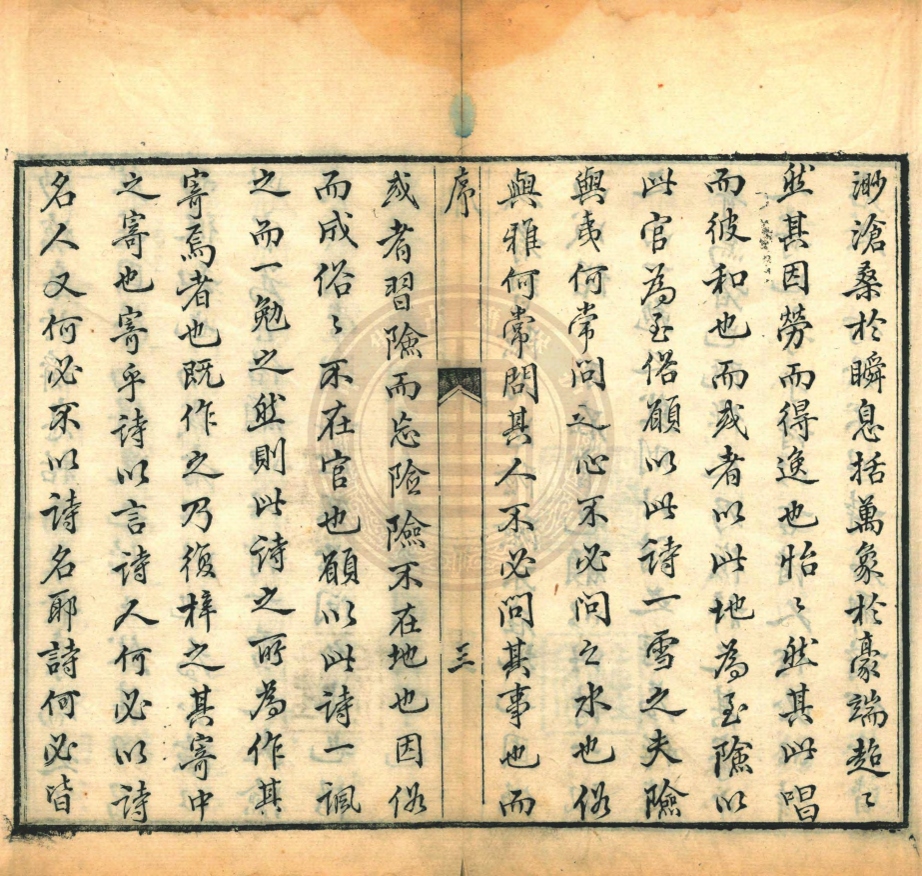 渺滄桑於瞬息括萬象於豪端超〻
然其因勞而得逸也怡〻然其此唱
而彼和也而或者以此地為至險以
此官為至俗願以此詩一雪之夫險
與夷何常問之心不必問之水也俗
與雅何常問其人不必問其事也而
序 三
或者習險而忘險險不在地也因俗
而成俗〻不在官也願以此詩一諷
之而一勉之然則此詩之所為作其
寄焉者也既作之乃復梓之其寄中
之寄也寄乎詩以言詩人何必以詩
名人又何必不以詩名耶詩何必皆